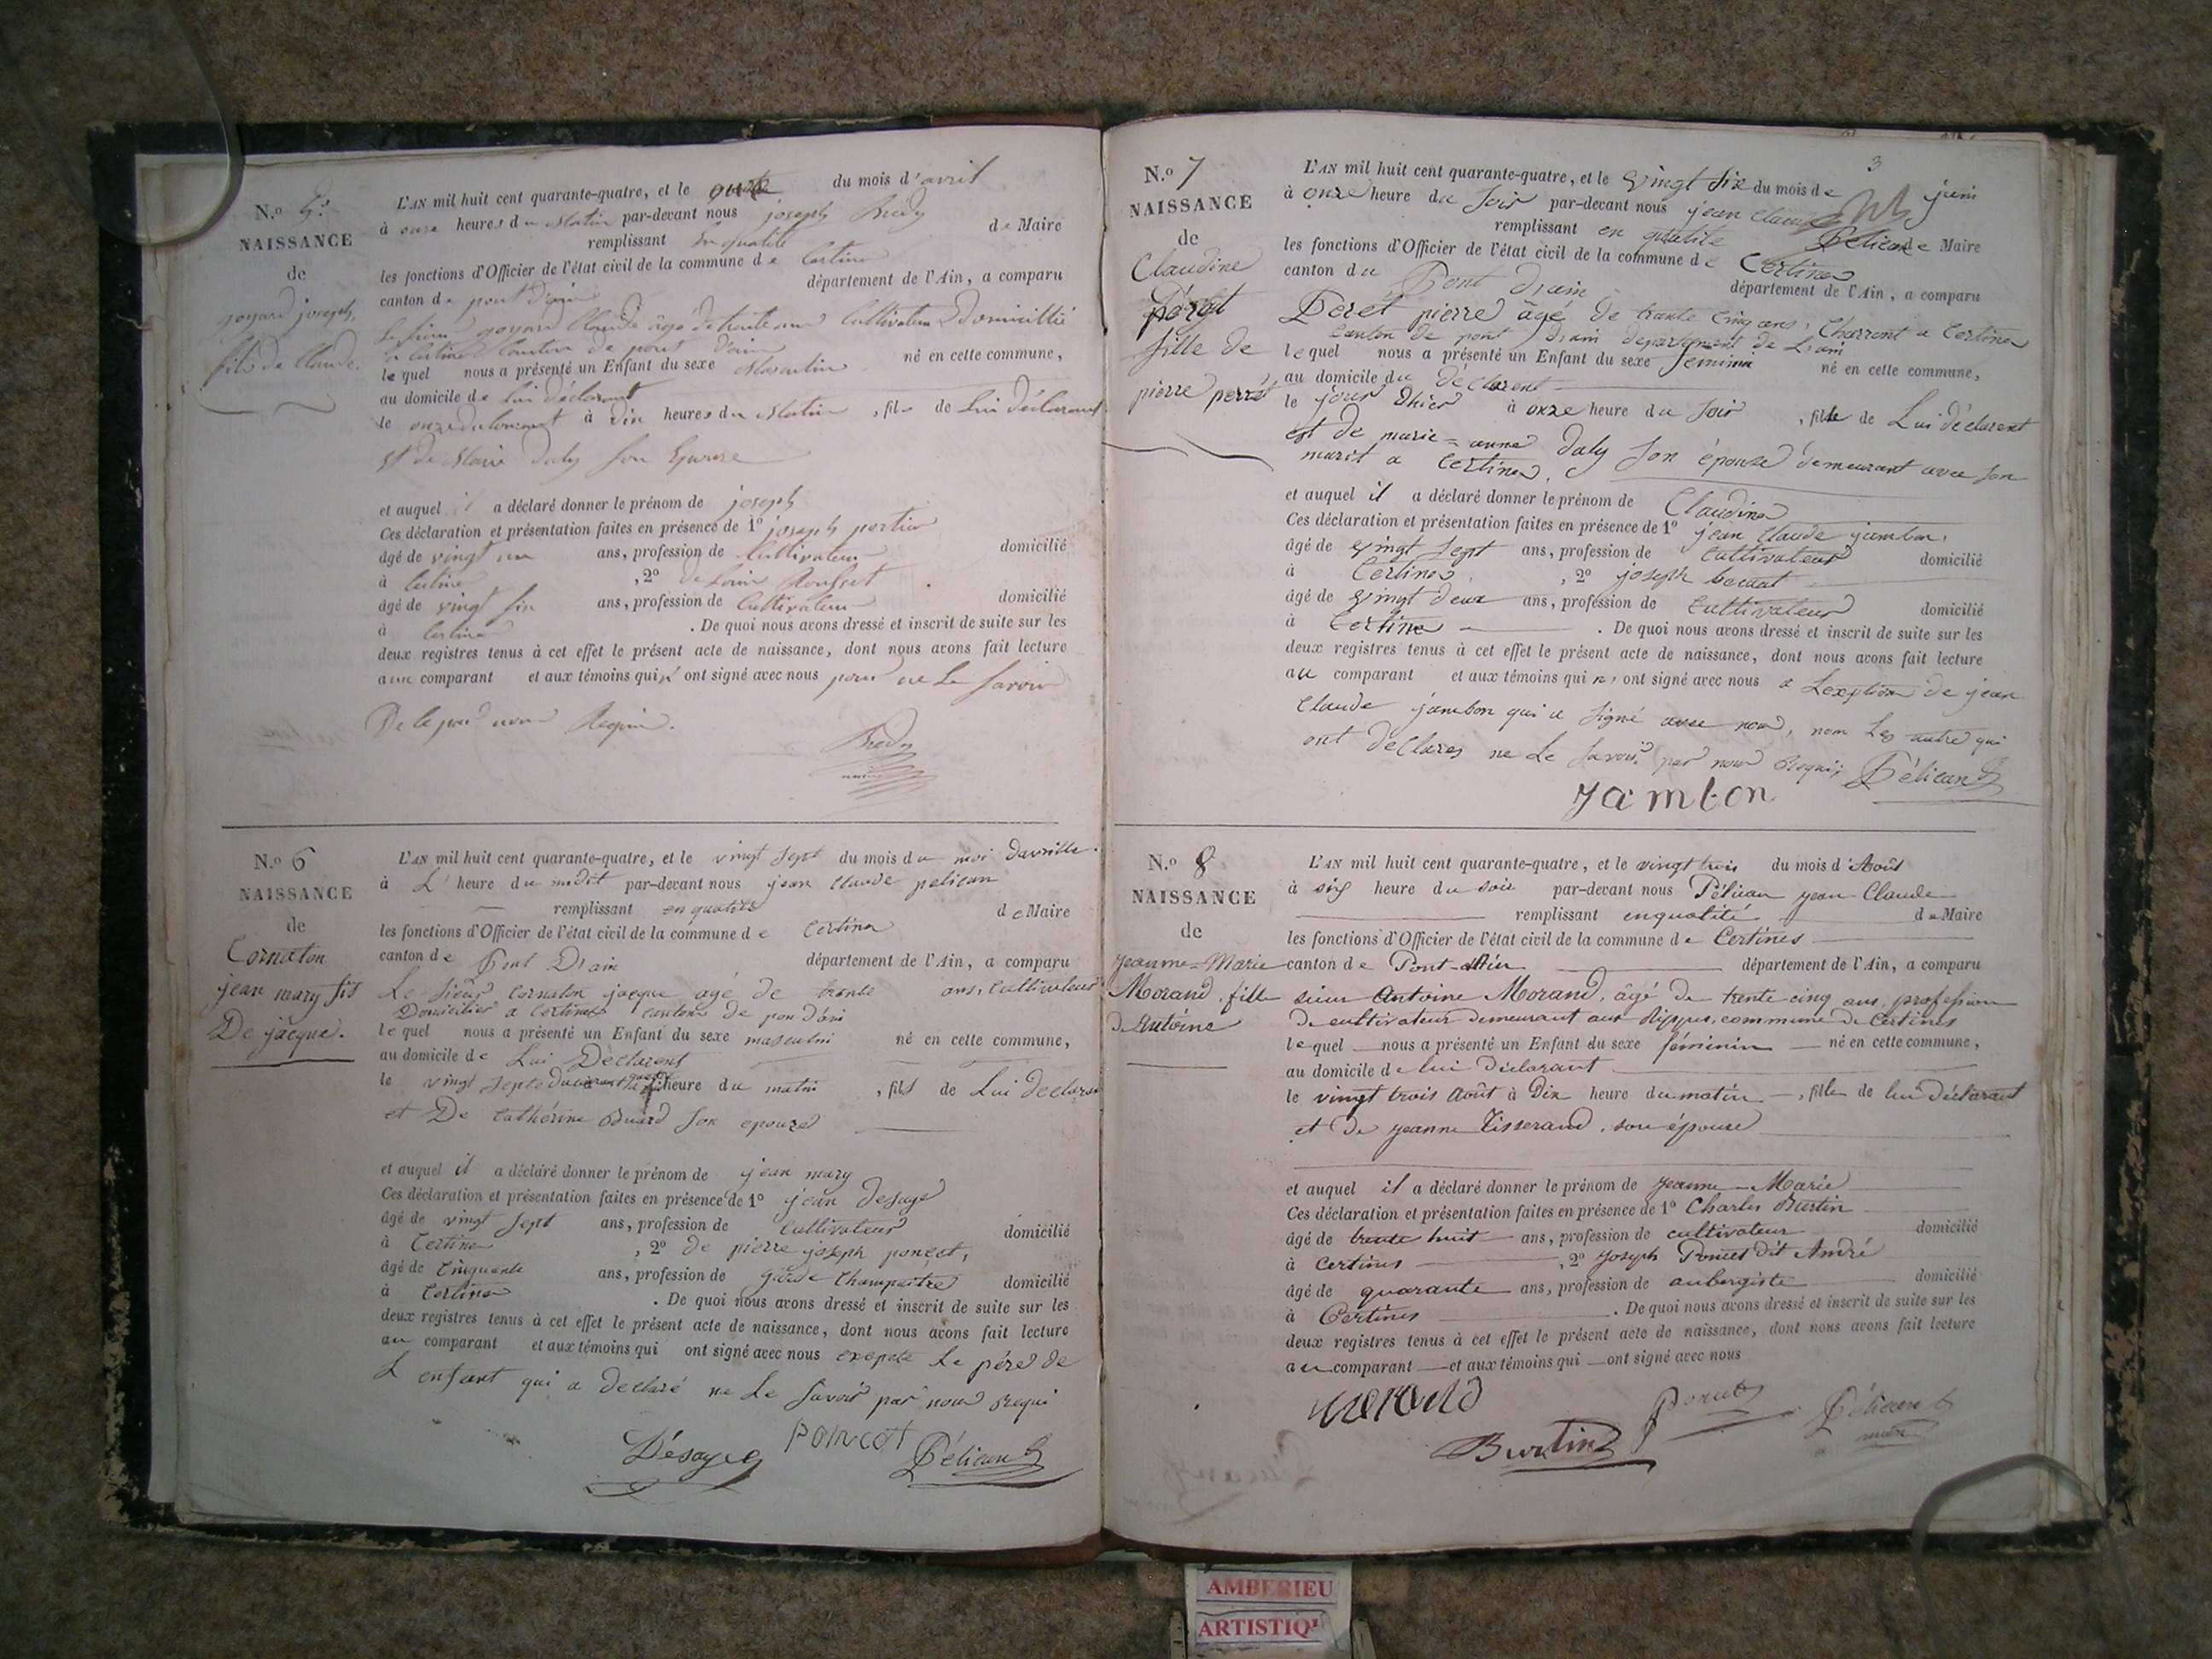 N.o 5.
NAISSANCE
de
goyard joseph,
fils de Claude.
L'AN mil huit cent quarante-quatre, et le onze du mois d'avril
à onze heures du Matin par-devant nous joseph Bredy
remplissant En qualité de Maire
les fonctions d'Officier de l'état civil de la commune de Certine
canton de pont d'ain département de l'Ain, a comparu
Le sieur goyard Claude âgé de trente ans Cultivateur Domicillié
a Certine Canton de pont d'ain
lequel nous a présenté un Enfant du sexe Masculin né en cette commune,
au domicile de lui déclarant
le onze du courant à Dix heures du Matin, fils de Lui Déclarant
et de Marie Daly son Epouse
et auquel il a déclaré donner le prénom de joseph
Ces déclaration et présentation faites en présence de 1o joseph portier
âgé de vingt un ans, profession de Cultivateur domicilié
à Certine , 2o de Louis
âgé de vingt six ans, profession de Cultivateur domicilié
à Certine . De quoi nous avons dressé et inscrit de suite sur les
deux registres tenus à cet effet le présent acte de naissance, dont nous avons fait lecture
aux comparant et aux témoins qui n'ont signé avec nous pour ne Le Savoir
De le par nous Requis.
Bredy
N.o 6
NAISSANCE
de
Cornaton
jean mary fis
De jacque.
L'AN mil huit cent quarante-quatre, et le vingt sept du mois du moi davrille.
à L' heure du midit par-devant nous jean Claude pelican
remplissant en qualité de Maire
les fonctions d'Officier de l'état civil de la commune de Certine
canton de Pont Dain département de l'Ain, a comparu
Le sieur Cornaton jacque agé de trente ans, Cultivateur
Domicilier a Certines cantons de pon d'ain
lequel nous a présenté un Enfant du sexe masculin né en cette commune,
au domicile de Lui Déclarent
le vingt septe du heure du matin , fils de Lui declarent
et De Cathérine Buard son epouze
et auquel il a déclaré donner le prénom de jean mary
Ces déclaration et présentation faites en présence de 1o jean Desaye
âgé de vingt sept ans, profession de Cultivateur domicilié
à Certine , 2o de pierre joseph poncet,
âgé de Cinquante ans, profession de garde Champaitre domicilié
à Certine . De quoi nous avons dressé et inscrit de suite sur les
deux registres tenus à cet effet le présent acte de naissance, dont nous avons fait lecture
au comparant et aux témoins qui ont signé avec nous exepte Le pére de
L enfant qui a declaré ne Le Savoir par nous requi
Désaye Poncet Pélican
3
N.o 7
NAISSANCE
de
Claudine
Pérét
fille de
pierre perret
L'AN mil huit cent quarante-quatre, et le vingt six du mois de juin
à onze heure du Soir par-devant nous jean Claude
remplissant en qualité Pélican de Maire
les fonctions d'Officier de l'état civil de la commune de Certines
canton du Pont Dain département de l'Ain, a comparu
Péret pierre âgé de trante Cinq ans, Charront a Certine
Canton de pont Dain departement de L'ain
lequel nous a présenté un Enfant du sexe feminin né en cette commune,
au domicile du déClarent
le jour Dhier à onze heure du Soir , fille de Lui déclarent
est de marie=anne Daly Son épouse demeurant avec Son
marit a Certines.
et auquel il a déclaré donner le prénom de Claudine
Ces déclaration et présentation faites en présence de 1o jean Claude jambon,
âgé de vingt Sept ans, profession de Cultivateur domicilié
à Certines , 2o joseph
âgé de vingt deux ans, profession de Cultivateur domicilié
à Certine . De quoi nous avons dressé et inscrit de suite sur les
deux registres tenus à cet effet le présent acte de naissance, dont nous avons fait lecture
au comparant et aux témoins qui n' ont signé avec nous a Lexption de jean
Claude jambon qui a Signé avec nous, nom Les autre qui
ont deClares ne Le Savoir par nous Requi; Pélican
Jambon
N.o 8
NAISSANCE
de
Jeanne=Marie
Morand, fille
d'Antoine
L'AN mil huit cent quarante-quatre, et le vingt trois du mois d'Août
à six heure du soir par-devant nous Pélican jean Claude
remplissant en qualité de Maire
les fonctions d'Officier de l'état civil de la commune de Certines
canton de Pont-d'Ain département de l'Ain, a comparu
sieur Antoine Morand, âgé de trente cinq ans, profession
de cultivateur demeurant aux Rippes, commune de Certines
lequel nous a présenté un Enfant du sexe féminin né en cette commune,
au domicile de lui Déclarant
le vingt trois Août à Dix heure du matin , fille de lui déclarant
et de jeanne Tisserand, son épouse
et auquel il a déclaré donner le prénom de Jeanne-Marie
Ces déclaration et présentation faites en présence de 1o Charles Burtin
âgé de trente huit ans, profession de cultivateur domicilié
à Certines , 2o Joseph Poncet dit André
âgé de quarante ans, profession de aubergiste domicilié
à Certines . De quoi nous avons dressé et inscrit de suite sur les
deux registres tenus à cet effet le présent acte de naissance, dont nous avons fait lecture
au comparant et aux témoins qui ont signé avec nous
Morand Poncet Pélican
Burtin maire
AMBERIEU
ARTISTIQ